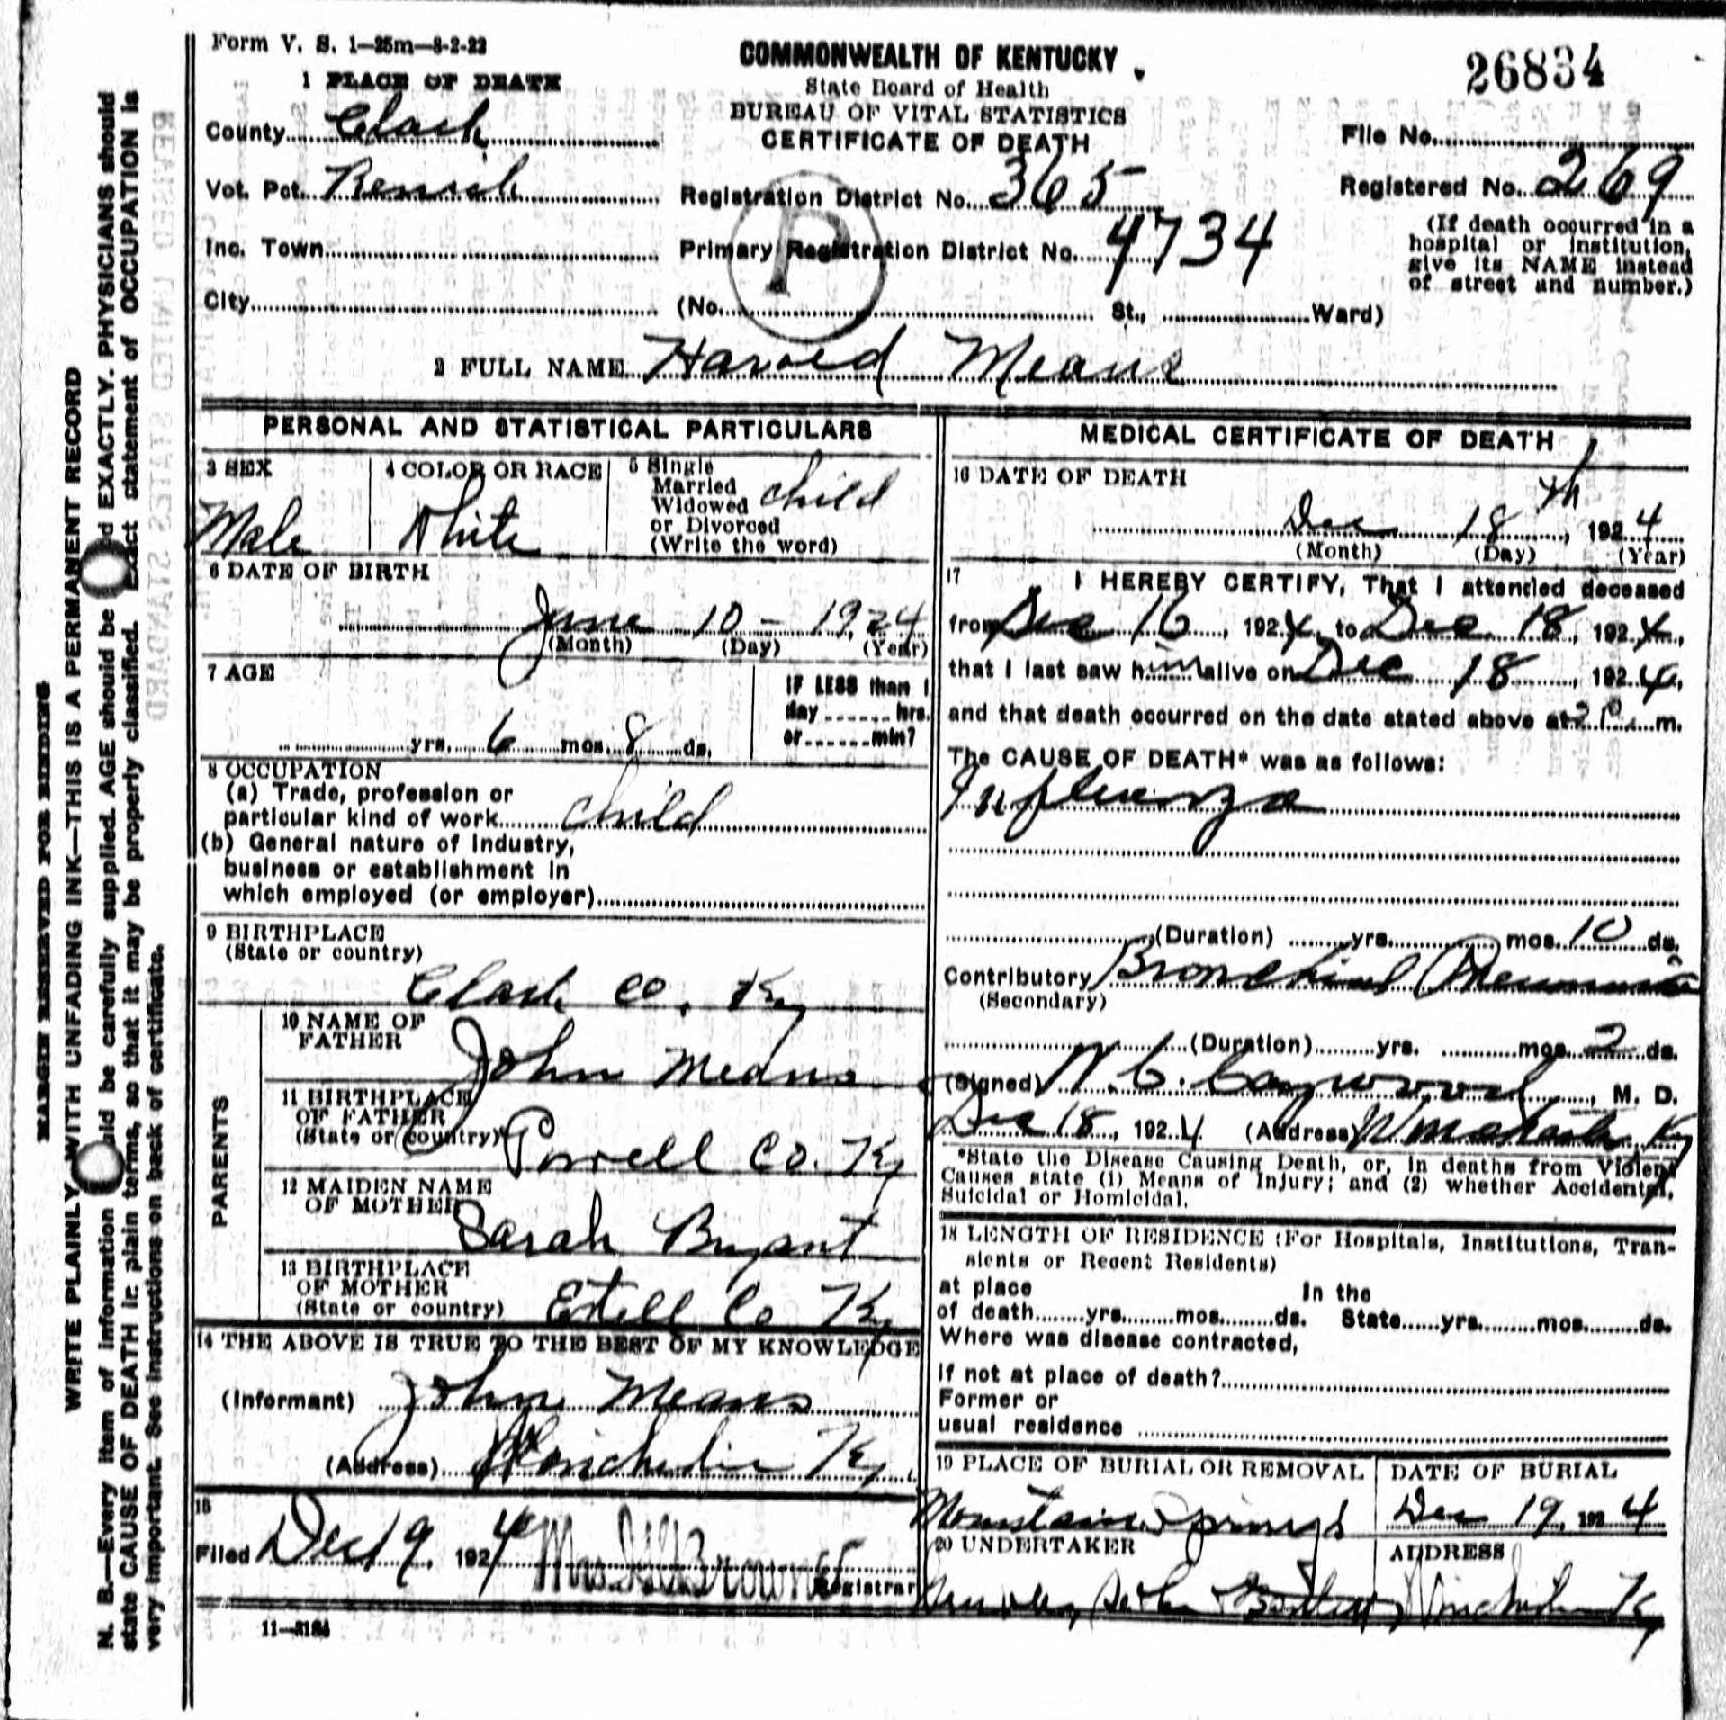 Form V. S. 1—25m—8-2-22
COMMONWEALTH OF KENTUCKY
State Board of Health
BUREAU OF VITAL STATISTICS
CERTIFICATE OF DEATH
26834
1 PLACE OF DEATH
County Clark
Vot. Pct.
Inc. Town
City
Registration District No. 365
Primary Registration District No. 4734
P
(No. St., Ward)
File No.
Registered No. 269
(If death occurred in a
hospital or institution,
give its NAME instead
of street and number.)
2 FULL NAME Harold Means
PERSONAL AND STATISTICAL PARTICULARS
3 SEX
Male
4 COLOR OR RACE
White
5 Single
Married
Widowed
or Divorced
(Write the word)
child
6 DATE OF BIRTH
June 10 - 1924
(Month) (Day) (Year)
7 AGE
yrs. 6 mos. 8 ds.
IF LESS than 1
day hrs.
or min?
8 OCCUPATION
(a) Trade, profession or
particular kind of work child
(b) General nature of industry,
business or establishment in
which employed (or employer)
9 BIRTHPLACE
(State or country)
Clark Co. Ky
PARENTS
10 NAME OF
FATHER
John Means
11 BIRTHPLACE
OF FATHER
(State or country)
Powell Co. Ky
12 MAIDEN NAME
OF MOTHER
Sarah Bryant
13 BIRTHPLACE
OF MOTHER
(State or country)
Estell Co Ky
14 THE ABOVE IS TRUE TO THE BEST OF MY KNOWLEDGE
(Informant) John Means
(Address) Winchester Ky
15
Filed Dec 19, 1924 Registrar
11—3184
MEDICAL CERTIFICATE OF DEATH
16 DATE OF DEATH
Dec 18th, 1924
(Month) (Day) (Year)
17 I HEREBY CERTIFY, That I attended deceased
from Dec 16, 1924, to Dec 18, 1924,
that I last saw him alive on Dec 18, 1924,
and that death occurred on the date stated above at 2 P. m.
The CAUSE OF DEATH* was as follows:
Influenza
(Duration) yrs. mos. 10 ds.
Contributory Bronchial Pneumonia
(Secondary)
(Duration) yrs. mos. 2 ds.
(Signed) , M. D.
Dec 18, 1924 (Address) Winchester Ky
*State the Disease Causing Death, or, in deaths from Violent
Causes state (1) Means of Injury; and (2) whether Accidental,
Suicidal or Homicidal.
18 LENGTH OF RESIDENCE (For Hospitals, Institutions, Tran-
sients or Recent Residents)
at place In the
of death yrs. mos. ds. State yrs. mos. ds.
Where was disease contracted,
If not at place of death?
Former or
usual residence
19 PLACE OF BURIAL OR REMOVAL
Mountain Springs
DATE OF BURIAL
Dec 19, 1924
20 UNDERTAKER
ADDRESS
Winchester Ky
MARGIN RESERVED FOR BINDING
WRITE PLAINLY WITH UNFADING INK—THIS IS A PERMANENT RECORD
N. B.—Every item of information should be carefully supplied. AGE should be stated EXACTLY. PHYSICIANS should
state CAUSE OF DEATH in plain terms, so that it may be properly classified. Exact statement of OCCUPATION is
very important. See instructions on back of certificate.